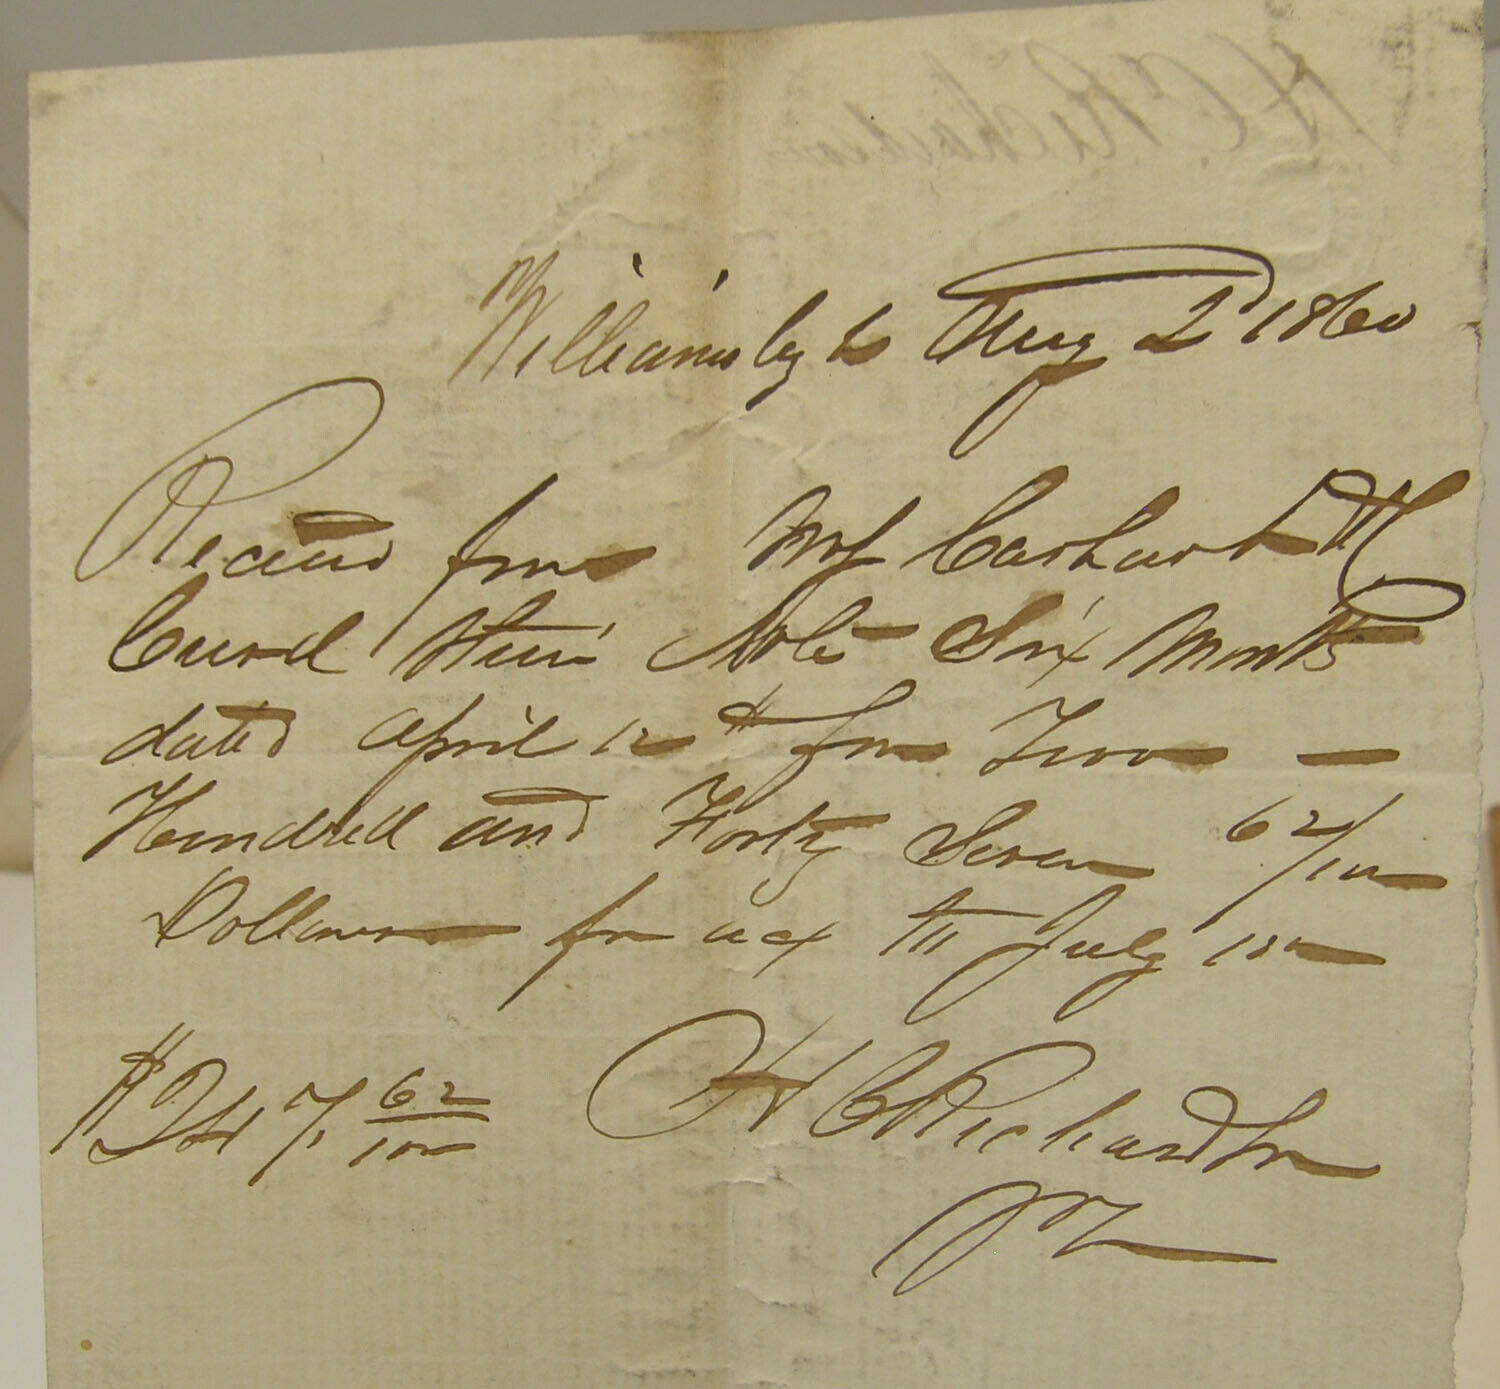 H C Richardson
Williamsbg Aug 2d 1860
Recived from Mrs Carhart &
Curd their Note Six Months
dated april 12th for Two —
Hundred and Forty Seven 62/100
Dollars for acx till July 1st
$247, 62/100 H C Richardson
Jr